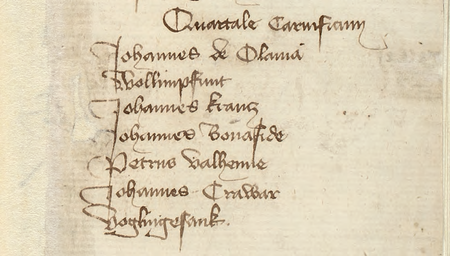 Quartale Carnificum
Johannes de Olauia
Wollimpfunt
Johannes Krancz
Johannes Bonafide
Petrus Valhenne
Johannes Crawar
Voglingesank.